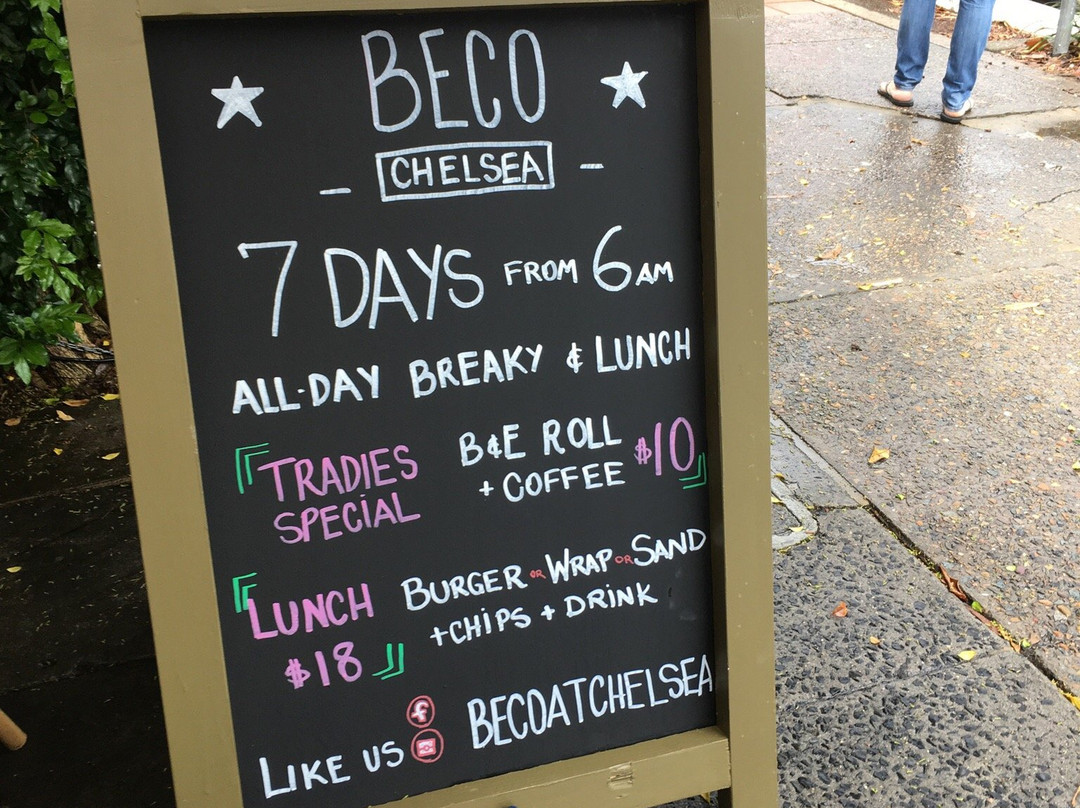 BECO
CHELSEA
7 DAYS FROM 6AM
ALL-DAY BREAKY & LUNCH
TRADIES SPECIAL
B&E ROLL + COFFEE
$10
LUNCH $18
BURGER OR WRAP OR SAND
+CHIPS + DRINK
LIKE US f BECOATCHELSEA